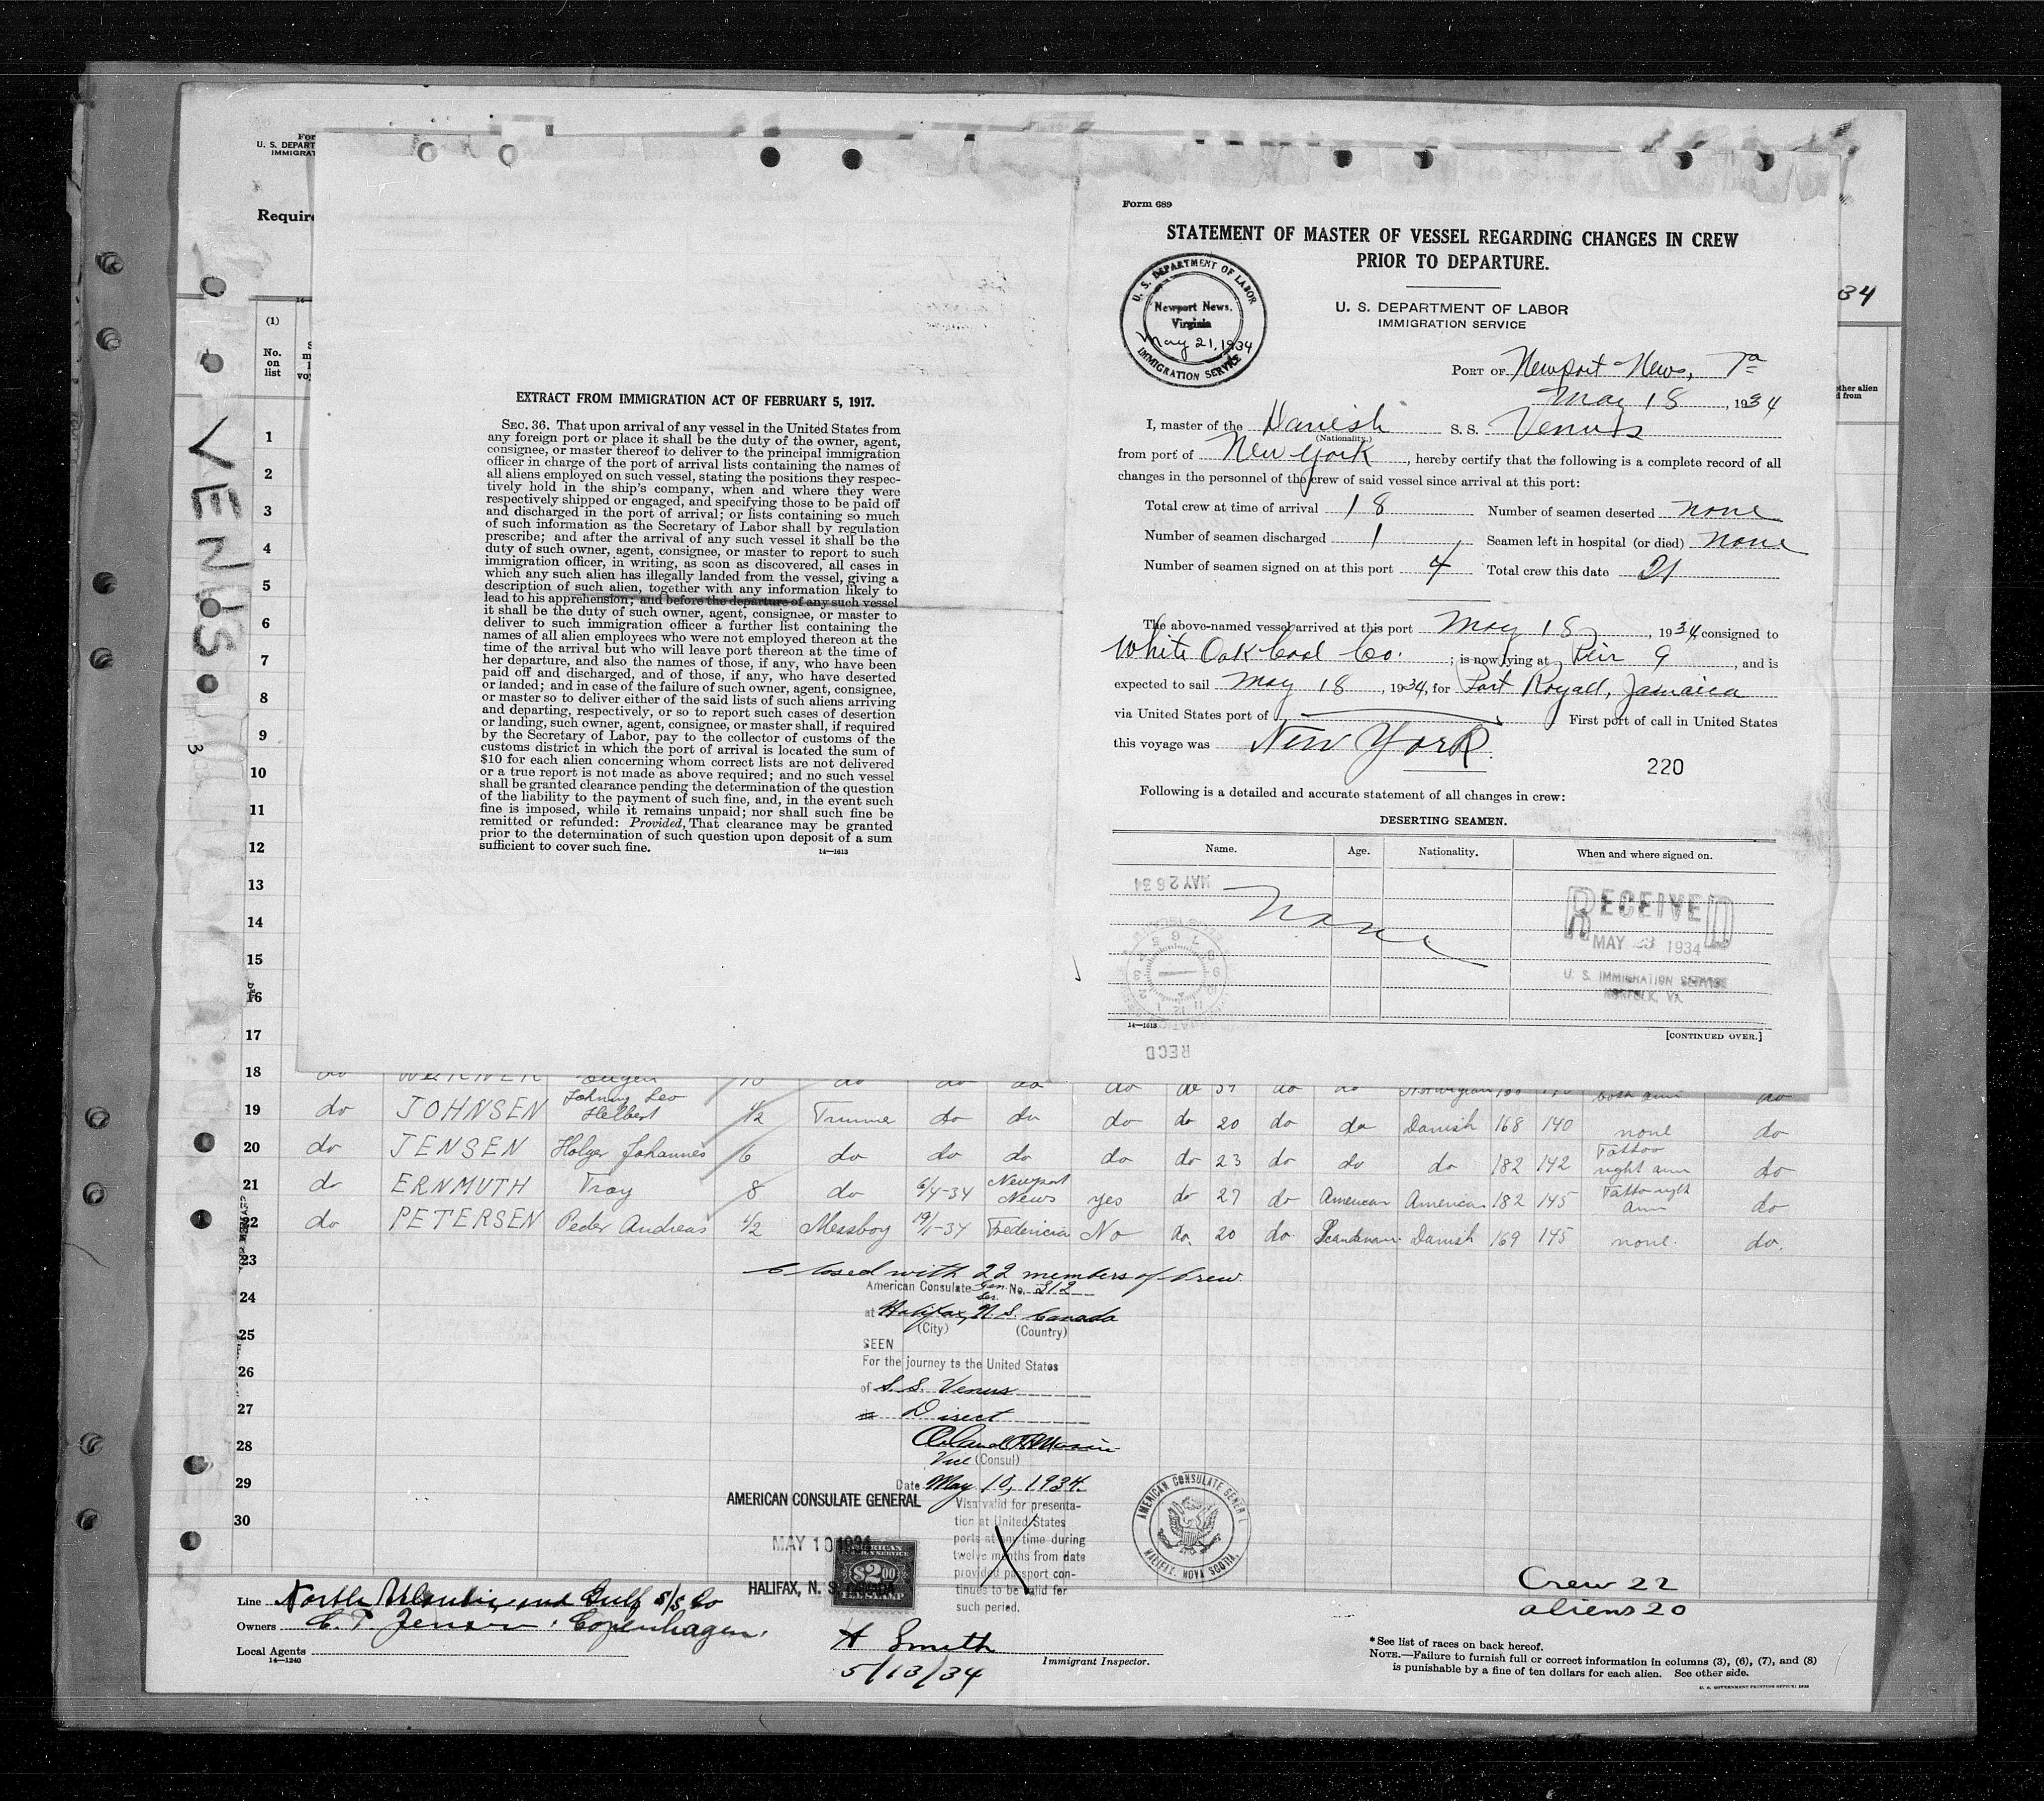 For
U. S. DEPART
IMMIGRAT
Require
(1)
No.
on
list
VENUS
3
34
ther alien
d from
EXTRACT FROM IMMIGRATION ACT OF FEBRUARY 5, 1917.
SEC. 36. That upon arrival of any vessel in the United States from
any foreign port or place it shall be the duty of the owner, agent,
consignee, or master thereof to deliver to the principal immigration
officer in charge of the port of arrival lists containing the names of
all aliens employed on such vessel, stating the positions they respec-
tively hold in the ship's company, when and where they were
respectively shipped or engaged, and specifying those to be paid off
and discharged in the port of arrival; or lists containing so much
of such information as the Secretary of Labor shall by regulation
prescribe; and after the arrival of any such vessel it shall be the
duty of such owner, agent, consignee, or master to report to such
immigration officer, in writing, as soon as discovered, all cases in
which any such alien has illegally landed from the vessel, giving a
description of such alien, together with any information likely to
lead to his apprehension; and before the departure of any such vessel
it shall be the duty of such owner, agent, consignee, or master to
deliver to such immigration officer a further list containing the
names of all alien employees who were not employed thereon at the
time of the arrival but who will leave port thereon at the time of
her departure, and also the names of those, if any, who have been
paid off and discharged, and of those, if any, who have deserted
or landed; and in case of the failure of such owner, agent, consignee,
or master so to deliver either of the said lists of such aliens arriving
and departing, respectively, or so to report such cases of desertion
or landing, such owner, agent, consignee, or master shall, if required
by the Secretary of Labor, pay to the collector of customs of the
customs district in which the port of arrival is located the sum of
$10 for each alien concerning whom correct lists are not delivered
or a true report is not made as above required; and no such vessel
shall be granted clearance pending the determination of the question
of the liability to the payment of such fine, and, in the event such
fine is imposed, while it remains unpaid; nor shall such fine be
remitted or refunded: Provided, That clearance may be granted
prior to the determination of such question upon deposit of a sum
sufficient to cover such fine.
14—1613
Form 689
STATEMENT OF MASTER OF VESSEL REGARDING CHANGES IN CREW
PRIOR TO DEPARTURE.
U. S. DEPARTMENT OF LABOR
IMMIGRATION SERVICE
U. S. DEPARTMENT OF LABOR
Newport News,
Virginia
May 21, 1934
IMMIGRATION SERVICE
PORT OF Newport News, Va
May 18, 1934
I, master of the Danish S. S. Venus
(Nationality.)
from port of New York, hereby certify that the following is a complete record of all
changes in the personnel of the crew of said vessel since arrival at this port:
Total crew at time of arrival 18 Number of seamen deserted none
Number of seamen discharged 1 Seamen left in hospital (or died) none
Number of seamen signed on at this port 4 Total crew this date 21
The above-named vessel arrived at this port May 18, 1934 consigned to
White Oak Coal Co.; is now lying at Pier 9, and is
expected to sail May 18, 1934, for Port Royall, Jamaica
via United States port of First port of call in United States
this voyage was New York.
220
Following is a detailed and accurate statement of all changes in crew:
DESERTING SEAMEN.
Name. Age. Nationality. When and where signed on.
None
MAY 26 34
RECD
RECEIVED
MAY 23 1934
U. S. IMMIGRATION SERVICE
NORFOLK, VA.
14—1613
[CONTINUED OVER.]
1
2
3
4
5
6
7
8
9
10
11
12
13
14
15
16
17
18 do WERNER Eugen 10 do do do do do 37 do do Norwegian both arm do
19 do JOHNSEN Johnny Leo Helbert 1/2 Trimmer do do do do 20 do do Danish 168 140 none do
20 do JENSEN Holger Johannes 6 do do do do do 23 do do do 182 142 Tattoo right arm do
21 do ERNMUTH Troy 8 do 6/4-34 Newport News yes do 27 do American American 182 145 Tatto right arm do
22 do PETERSEN Peder Andreas 1/2 Messboy 19/1-34 Fredericia No do. 20 do. Scandinavian Danish 169 145 none. do.
23
24
25
26
27
28
29
30
Closed with 22 members of Crew.
American Consulate Gen. No. 312
Ser.
at Halifax, N. S. Canada
(City) (Country)
SEEN
For the journey to the United States
of S. S. Venus
via Direct
Vice (Consul)
Date May 10, 1934.
Visa valid for presenta-
tion at United States
ports at any time during
twelve months from date
provided passport con-
tinues to be valid for
such period.
AMERICAN CONSULATE GENERAL
MAY 10 1934
HALIFAX, N. S. CANADA
AMERICAN
SERVICE
$2.00
FEE STAMP
AMERICAN CONSULATE GENERAL
HALIFAX, NOVA SCOTIA.
Crew 22
aliens 20
Line North Atlantic and Gulf S/S Co
Owners C. T. Jensen, Copenhagen.
Local Agents
14—1240
A Smith
Immigrant Inspector.
5/13/34
* See list of races on back hereof.
NOTE.—Failure to furnish full or correct information in columns (3), (6), (7), and (8)
is punishable by a fine of ten dollars for each alien. See other side.
U. S. GOVERNMENT PRINTING OFFICE: